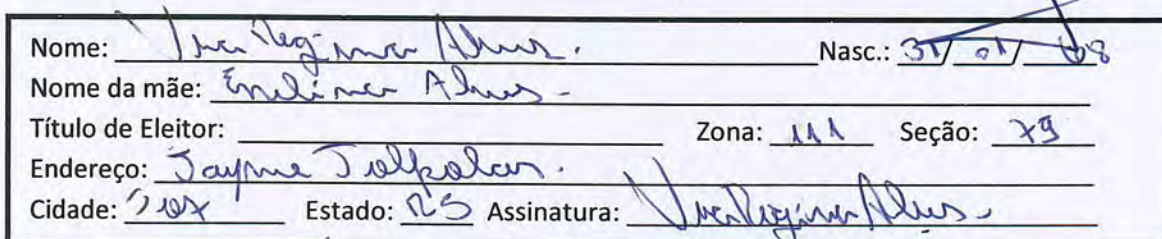 Nome: Regina Alves. Nasc.: 31/01/68
Nome da mãe: Alves.
Título de Eleitor: Zona: 111 Seção: 79
Endereço: Jayme Tolpolar.
Cidade: Estado: RS Assinatura: Regina Alves.